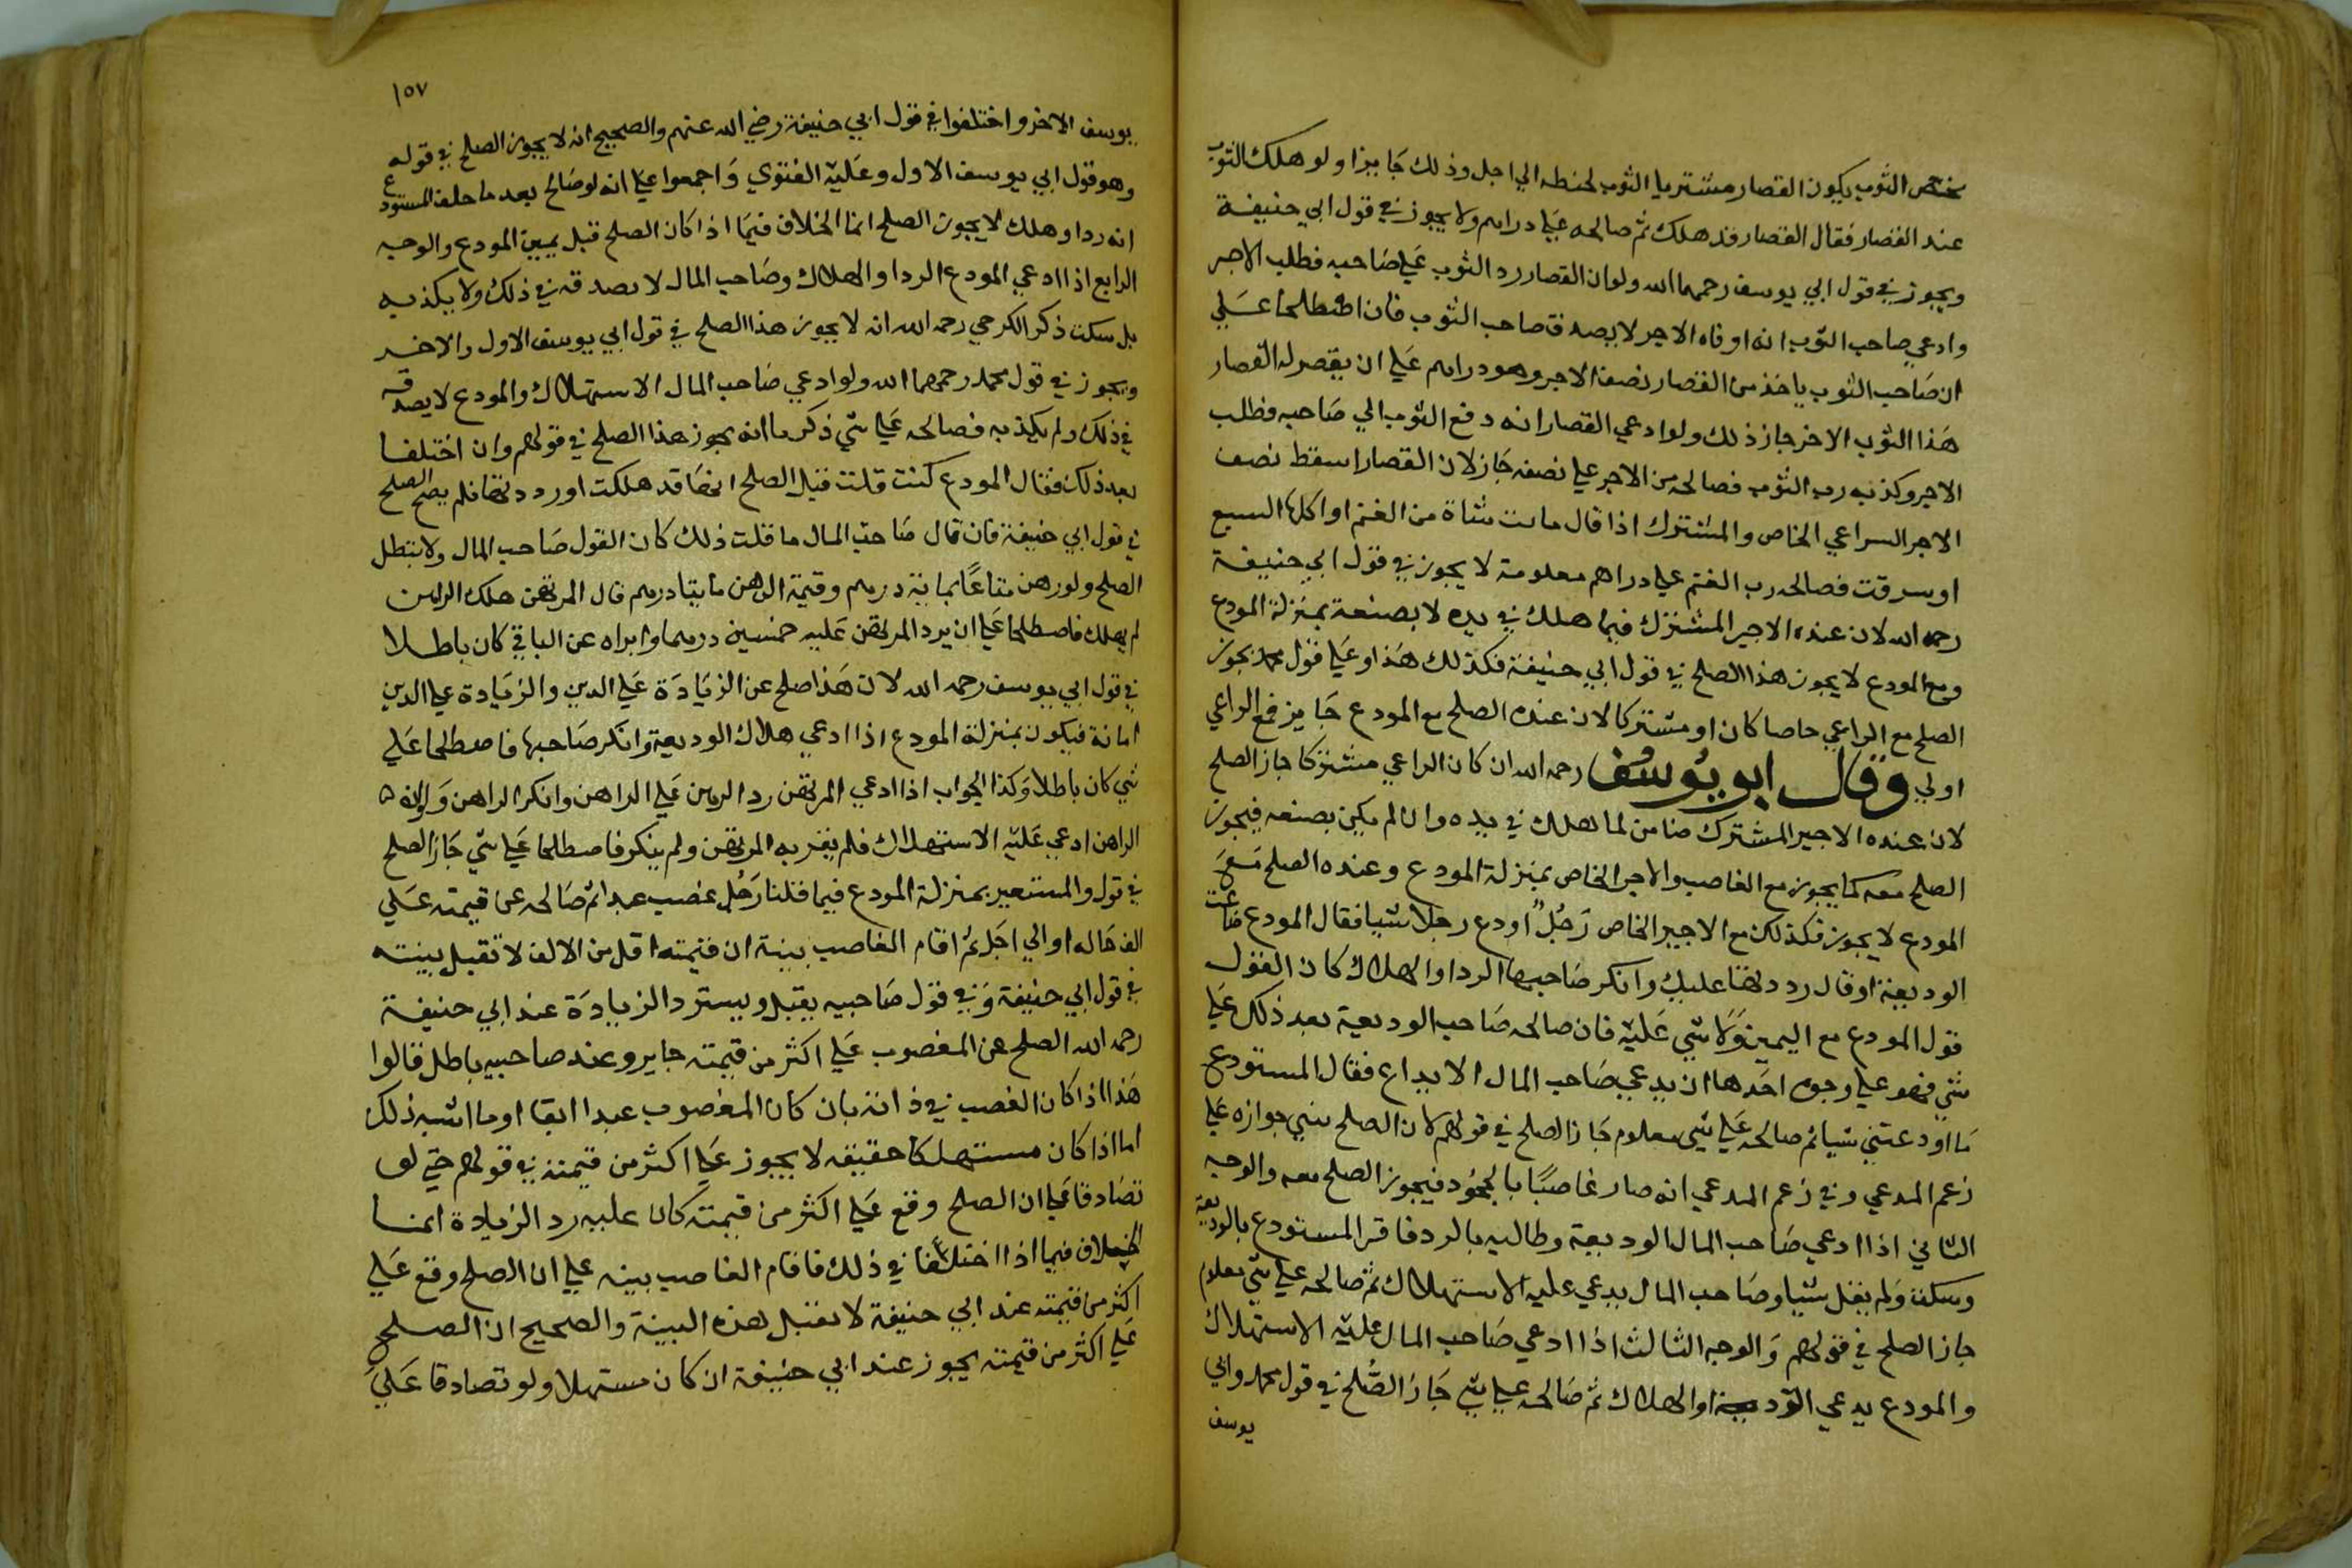 يخص الثوب يكون القصار مشتريا الثوب لحنطه الي اجل وذلك جايزا ولو هلك الثوب
عند القصار فقال القصار قد هلك ثم صالحه علي دراهم ولا يجوز في قول ابي حنيفة
ويجوز في قول ابي يوسف رحمهما الله ولو ان القصار رد الثوب علي صاحبه فطلب الاجر
وادعي صاحب الثوب انه اوفاه الاجر لا يصدق صاحب الثوب فان اصطلحا علي
ان صاحب الثوب ياخذ من القصار نصف الاجر وهو دراهم علي ان يقصر له القصار
هذا الثوب الاخر جاز ذلك ولو ادعي القصار انه دفع الثوب الي صاحبه وطلب
الاجر وكذبه رب الثوب فصالحه من الاجر علي نصفه جاز لان القصار اسقط نصف
الاجر الراعي الخاص والمشترك اذا قال ماتت شاة من الغنم او اكلها السبع
او سرقت فصالحه رب الغنم علي دراهم معلومة لا يجوز في قول ابي حنيفة
رحمه الله لان عنده الاجير المشترك فيما هلك في يده لا بصنعه بمنزلة المودع
ومع المودع لا يجوز هذا الصلح في قول ابي حنيفة فكذلك هذا وعلي قول محمد يجوز
الصلح مع الراعي خاصا كان او مشتركا لان عنده الصلح مع المودع جايز فمع الراعي
اولي وقال ابو يوسف رحمه الله ان كان الراعي مشتركا جاز الصلح
لان عنده الاجير المشترك ضامن لما هلك في يده وان لم يكن بصنعه فيجوز
الصلح معه كما يجوز مع الغاصب والاجير الخاص بمنزلة المودع وعنده الصلح مع
المودع لا يجوز فكذلك مع الاجير الخاص رجل اودع رجلا شيا فقال المودع ضاعت
الوديعة او قال رددتها عليك وانكر صاحبها الرد او الهلاك كان القول
قول المودع مع اليمين ولا شي عليه فان صالحه صاحب الوديعة بعد ذلك علي
شي فهو علي وجوه احدها ان يدعي صاحب المال الايداع فقال المستودع
ما اودعتني شيا ثم صالحه علي شي معلوم جاز الصلح في قولهم لان الصلح يبني جوازه علي
زعم المدعي وفي زعم المدعي انه صار غاصبا بالجحود فيجوز الصلح معه والوجه
الثاني اذا ادعي صاحب المال الوديعة وطالبه بالرد فاقر المستودع بالوديعة
وسكت ولم يقل شيا وصاحب المال يدعي عليه الاستهلاك ثم صالحه علي شي معلوم
جاز الصلح في قولهم والوجه الثالث اذا ادعي صاحب المال عليه الاستهلاك
والمودع يدعي الرد او الهلاك ثم صالحه علي شي جاز الصلح في قول محمد وابي
يوسف
١٥٧
يوسف الاخر واختلفوا في قول ابي حنيفة رضي الله عنهم والصحيح انه لا يجوز الصلح في قوله
وهو قول ابي يوسف الاول وعليه الفتوي واجمعوا علي انه لو صالح بعد ما حلف المستودع
انه رد او هلك لا يجوز الصلح انما الخلاف فيما اذا كان الصلح قبل يمين المودع والوجه
الرابع اذا ادعي المودع الرد او الهلاك وصاحب المال لا يصدقه في ذلك ولا يكذبه
بل سكت ذكر الكرخي رحمه الله انه لا يجوز هذا الصلح في قول ابي يوسف الاول والاخر
ويجوز في قول محمد رحمهما الله ولو ادعي صاحب المال الاستهلاك والمودع لا يصدقه
في ذلك ولم يكذبه فصالحه علي شي ذكرنا انه يجوز هذا الصلح في قولهم وان اختلفا
بعد ذلك فقال المودع كنت قلت قبل الصلح انها قد هلكت او رددتها فلم يصح الصلح
في قول ابي حنيفة فان قال صاحب المال ما قلت ذلك كان القول صاحب المال ولا يبطل
الصلح ولو رهن متاعا بماية درهم وقيمة الرهن مايتا درهم قال المرتهن هلك الرهن
لم يهلك فاصطلحا علي ان يرد المرتهن عليه خمسين درهما وابراه عن الباقي كان باطلا
في قول ابي يوسف رحمه الله لان هذا صلح عن الزيادة علي الدين والزيادة علي الدين
امانة فيكون بمنزلة المودع اذا ادعي هلاك الوديعة وانكر صاحبها فاصطلحا علي
شي كان باطلا وكذا الجواب اذا ادعي المرتهن رد الرهن علي الراهن وانكر الراهن ولو ان
الراهن ادعي عليه الاستهلاك فلم يقر به المرتهن ولم ينكر فاصطلحا علي شي جاز الصلح
في قول والمستعير بمنزلة المودع فيما قلنا رجل غصب عبدا ثم صالحه عن قيمته علي
الف حاله او الي اجل ثم اقام الغاصب بينة ان قيمته اقل من الالف لا تقبل بينته
في قول ابي حنيفة وفي قول صاحبيه يقبل ويسترد الزيادة عند ابي حنيفة
رحمه الله الصلح عن المغصوب علي اكثر من قيمته جايز وعند صاحبيه باطل قالوا
هذا اذا كان الغصب في ذاته بان كان المغصوب عبدا ابقا او ما اشبه ذلك
اما اذا كان مستهلكا حقيقه لا يجوز علي اكثر من قيمته في قولهم حتي لو
تصادقا علي ان الصلح وقع علي اكثر من قيمته كان عليه رد الزيادة انما
الخلاف فيما اذا اختلفا في ذلك فاقام الغاصب بينه علي ان الصلح وقع علي
اكثر من قيمته عند ابي حنيفة لا تقبل هذه البينة والصحيح ان الصلح
علي اكثر من قيمته يجوز عند ابي حنيفة ان كان مستهلا ولو تصادقا علي